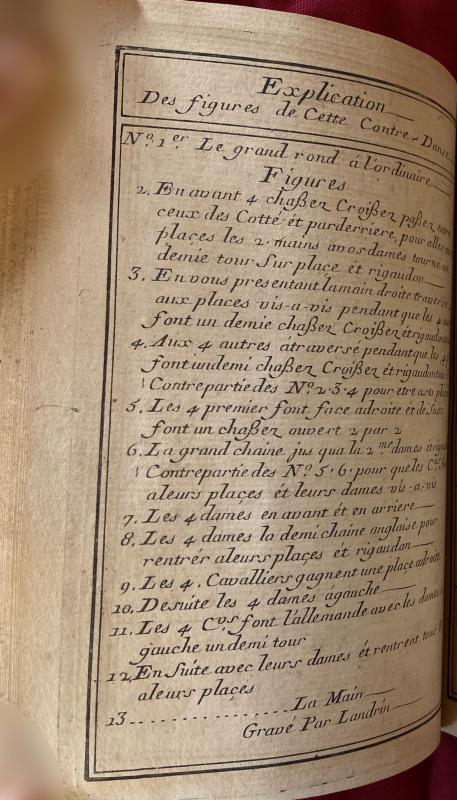 Explication
Des figures de Cette Contre-Danse
No. 1er Le grand rond á l'ordinaire
Figures
2. En avant 4 chaßez Croißez paßez
ceux des Cotté et parderriere, pour aller
plaçes les 2. mains avos dames
demie tour Sur plaçe ét rigaudon
3. En vous presentant lamain droite
aux plaçes vis-a-vis pendant que les 4
font un demie chaßez Croißez ét
4. Aux 4 autres átraversé pendantque les 4
font undemi chaßez Croißez ét
Contrepartie des No. 2. 3. 4 pour etre
5. Les 4 premier font face adroite ét de Suite
font un chaßez ouvert 2 par 2
6. La grand chaine, jus qua la 2.me dames
Contrepartie des No. 5. 6. pour que les
aleurs plaçes ét leurs dames vis-a-vis
7. Les 4 dames en avant ét en arriere
8. Les 4 dames la demi chaine anglaise pour
rentrér aleurs plaçes ét rigaudon
9. Les 4. Cavalliers gagnent une plaçe adroite
10. Desuite les 4 dames ágauche
11. Les 4 C.vrs font l'allemande avec les dames
gauche un demi tour
12. En Suite avec leurs dames ét rentrent tous
aleurs plaçes
13 ................. La Main
Gravé Par Landrin